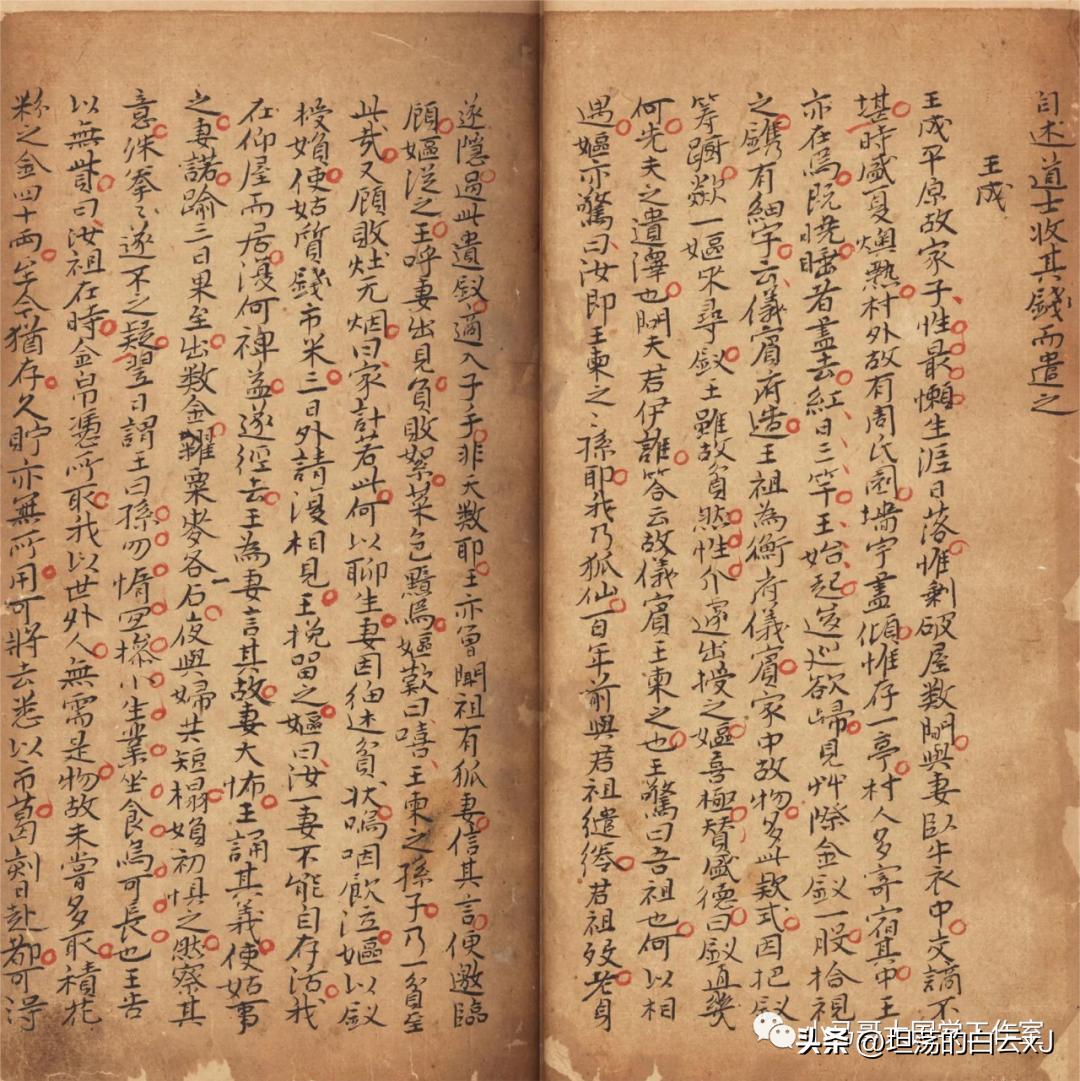 自述道士收其錢而遣之
王成
王成平原故家子性最懶生涯日落惟剩破屋数間與妻臥牛衣中交謫不
堪時盛夏燠熱村外故有周氏園墙宇盡傾惟存一亭村人多寄宿其中王
亦在焉既曉睡者盡去紅日三竿王始起逡巡欲歸見艸際金釵一股拾視
之鐫有細字云儀賓府造王祖為衡府儀賓家中故物多此款式因把釵
躊蹰欻一嫗来尋釵王雖故貧然性介遽出授之嫗喜極賛盛德曰釵直幾
何先夫之遺澤也問夫君伊誰答云故儀賓王柬之也王驚曰吾祖也何以相
遇嫗亦驚曰汝即王柬之之孫耶我乃狐仙百年前與君祖繾綣君祖歿老身
遂隱過此遺釵適入子手非天数耶王亦曾聞祖有狐妻信其言便邀臨
顧嫗從之王呼妻出見負敗絮菜色黯焉嫗歎曰嘻王柬之孫子乃一貧至
此哉又顧敗灶无烟曰家計若此何以聊生妻因細述貧状嗚咽飲泣嫗以釵
授婦使姑質錢市米三日外請復相見王挽留之嫗曰汝一妻不能自存活我
在仰屋而居復何裨益遂徑去王為妻言其故妻大怖王誦其義使姑事
之妻諾踰三日果至出数金糴粟麥各一石夜與婦共短榻婦初惧之然察其
意殊拳々遂不之疑翌日謂王曰孫勿惰宜操小生業坐食焉可長也王告
以無貲曰汝祖在時金帛憑所取我以世外人無需是物故未嘗多取積花
粉之金四十両至今猶存久貯亦無所用可將去悉以市葛刻日赴都可淂
头条 @坦荡的白云xJ